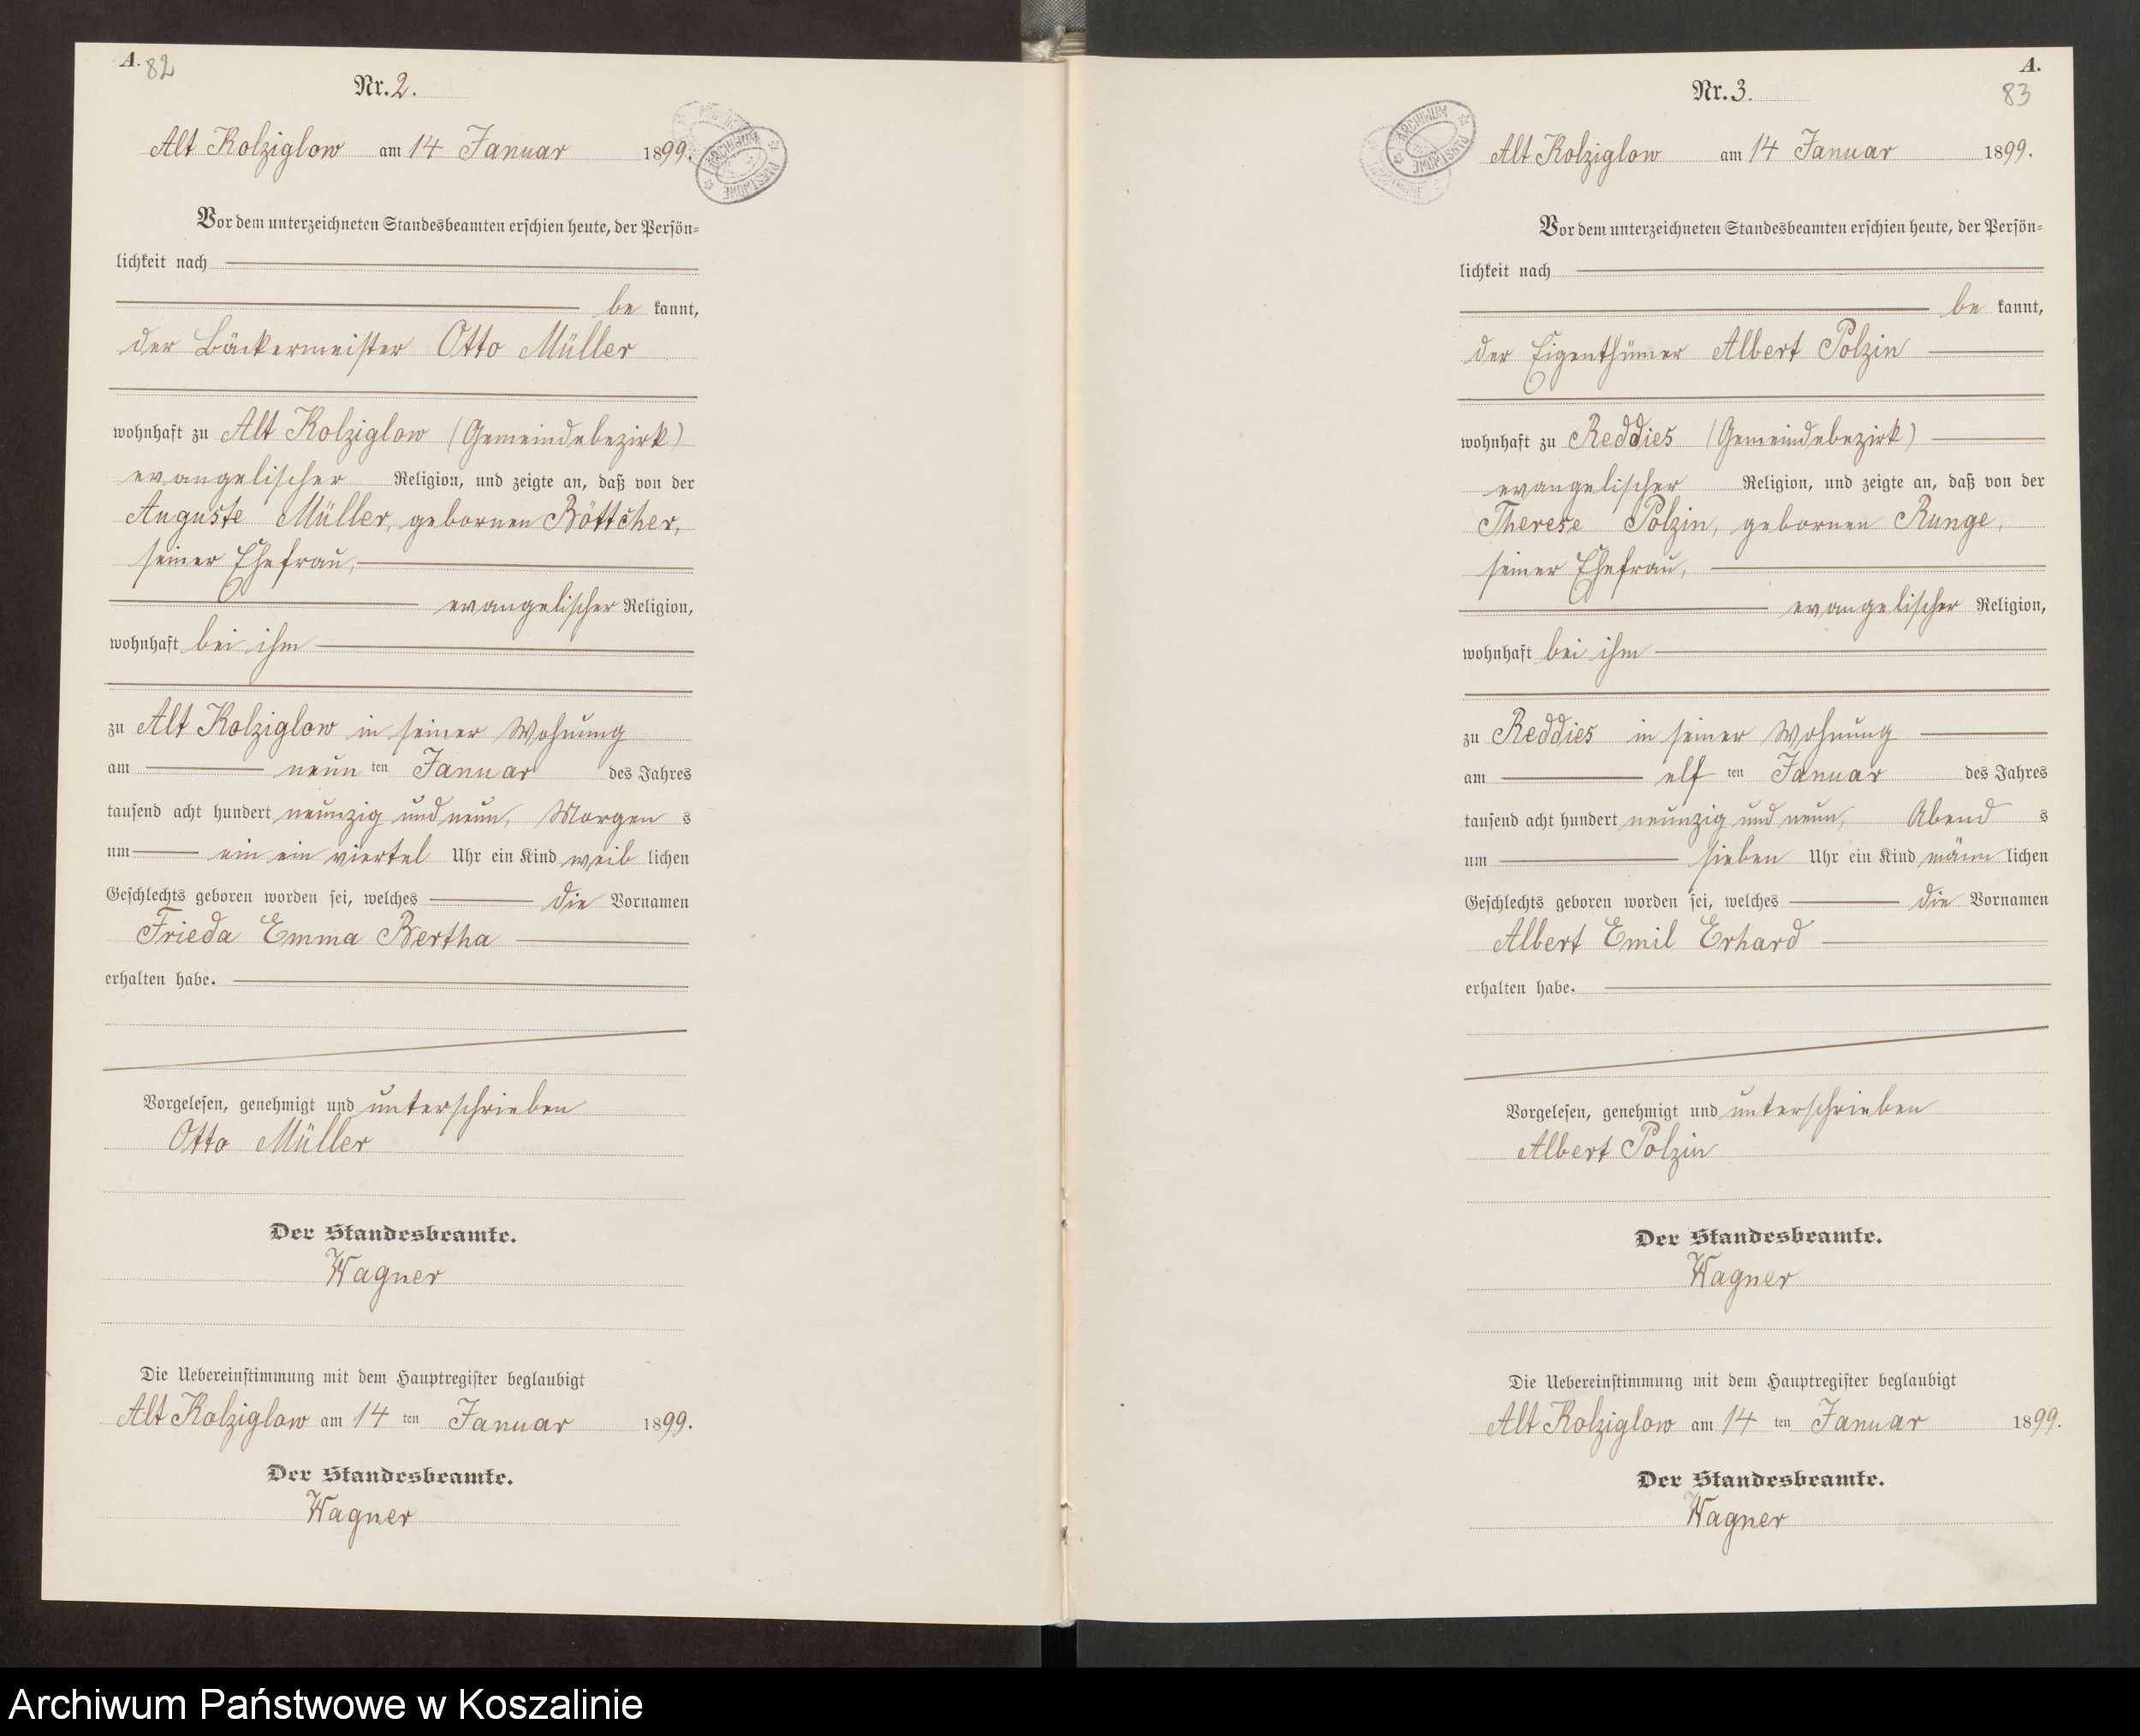 A.
82
Nr. 2.
Alt Kolziglow am 14 Januar 1899.
ARCHIWUM PAŃSTWOWE
Vor dem unterzeichneten Standesbeamten erschien heute, der Persön=
lichkeit nach
be kannt,
der Bäckermeister Otto Müller
wohnhaft zu Alt Kolziglow (Gemeindebezirk)
evangelischer Religion, und zeigte an, daß von der
Auguste Müller, gebornen Böttcher,
seiner Ehefrau,
evangelischer Religion,
wohnhaft bei ihm
zu Alt Kolziglow in seiner Wohnung
am neun ten Januar des Jahres
tausend acht hundert neunzig und neun, Morgen s
um ein ein viertel Uhr ein Kind weib lichen
Geschlechts geboren worden sei, welches die Vornamen
Frieda Emma Bertha
erhalten habe.
Vorgelesen, genehmigt und unterschrieben
Otto Müller
Der Standesbeamte.
Wagner
Die Uebereinstimmung mit dem Hauptregister beglaubigt
Alt Kolziglow am 14 ten Januar 1899.
Der Standesbeamte.
Wagner
A.
83
Nr. 3.
ARCHIWUM PAŃSTWOWE
Alt Kolziglow am 14 Januar 1899.
Vor dem unterzeichneten Standesbeamten erschien heute, der Persön=
lichkeit nach
be kannt,
der Eigenthümer Albert Polzin
wohnhaft zu Reddies (Gemeindebezirk)
evangelischer Religion, und zeigte an, daß von der
Therese Polzin, gebornen Runge,
seiner Ehefrau,
evangelischer Religion,
wohnhaft bei ihm
zu Reddies in seiner Wohnung
am elf ten Januar des Jahres
tausend acht hundert neunzig und neun, Abend s
um sieben Uhr ein Kind männ lichen
Geschlechts geboren worden sei, welches die Vornamen
Albert Emil Erhard
erhalten habe.
Vorgelesen, genehmigt und unterschrieben
Albert Polzin
Der Standesbeamte.
Wagner
Die Uebereinstimmung mit dem Hauptregister beglaubigt
Alt Kolziglow am 14 ten Januar 1899.
Der Standesbeamte.
Wagner
Archiwum Państwowe w Koszalinie